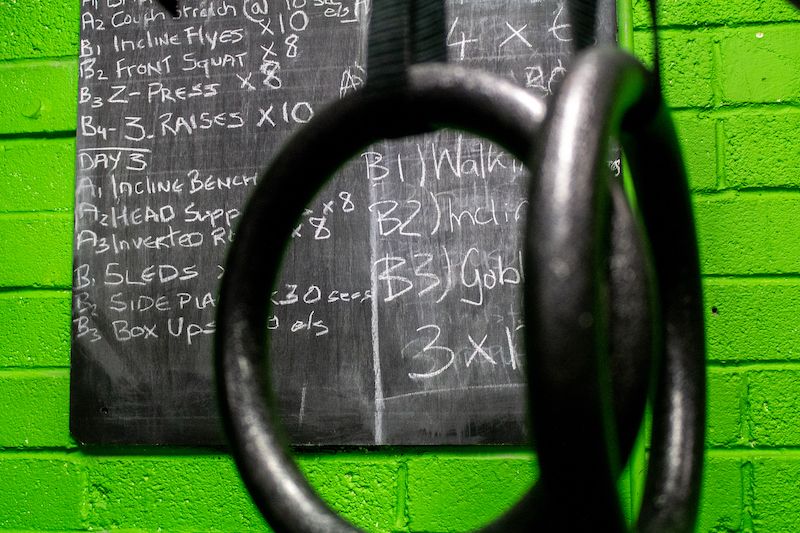 A2 Couch Stretch @ 10 secs e/s
B1 Incline Flyes x10
B2 Front Squat x8
B3 Z-Press x8
B4 - 3 Raises x10
DAY 3
A1 Incline Bench
A2 Head Supp x8
A3 Inverted R x8
B1 Sleds x
B2 Side Pla x30 secs
B3 Box Ups 0 e/s
4 x 6
A)
B1) Walkin
B2) Inclin
B3) Gobl
3 x 1